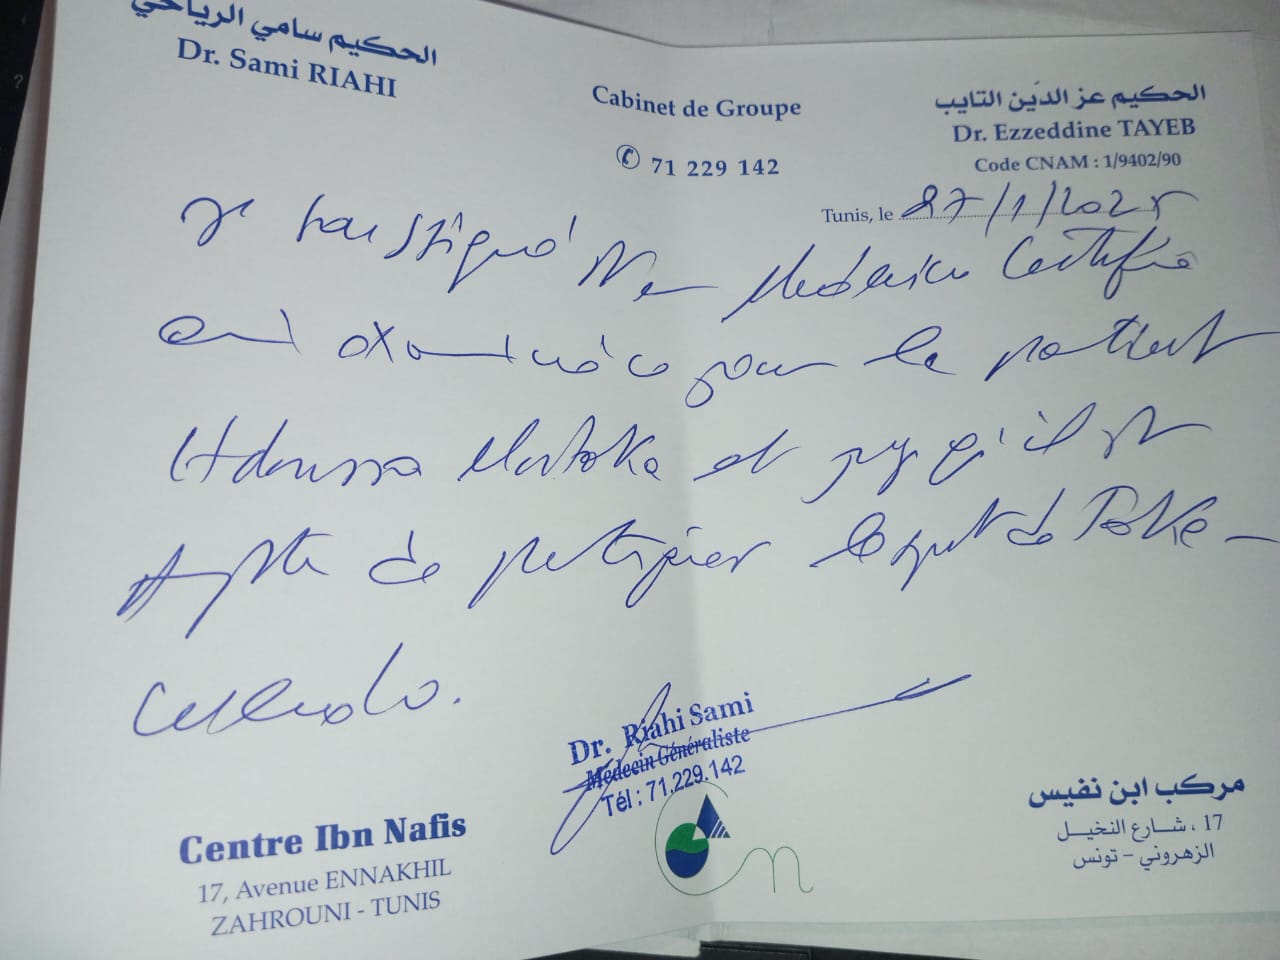 الحكيم سامي الرياحي
Dr. Sami RIAHI
Cabinet de Groupe
✆ 71 229 142
الحكيم عز الدّين التايب
Dr. Ezzeddine TAYEB
Code CNAM : 1/9402/90
Tunis, le 27/1/2025
Je soussigné Medecin Certifie
avoir examiné ce jour le patient
Moustaka et que qu'il est
Apte de pratiquer le sport de
Dr. Riahi Sami
Médecin Généraliste
Tél : 71.229.142
Centre Ibn Nafis
17, Avenue ENNAKHIL
ZAHROUNI - TUNIS
مركب ابن نفيس
17 ، شارع النخيل
الزهروني - تونس